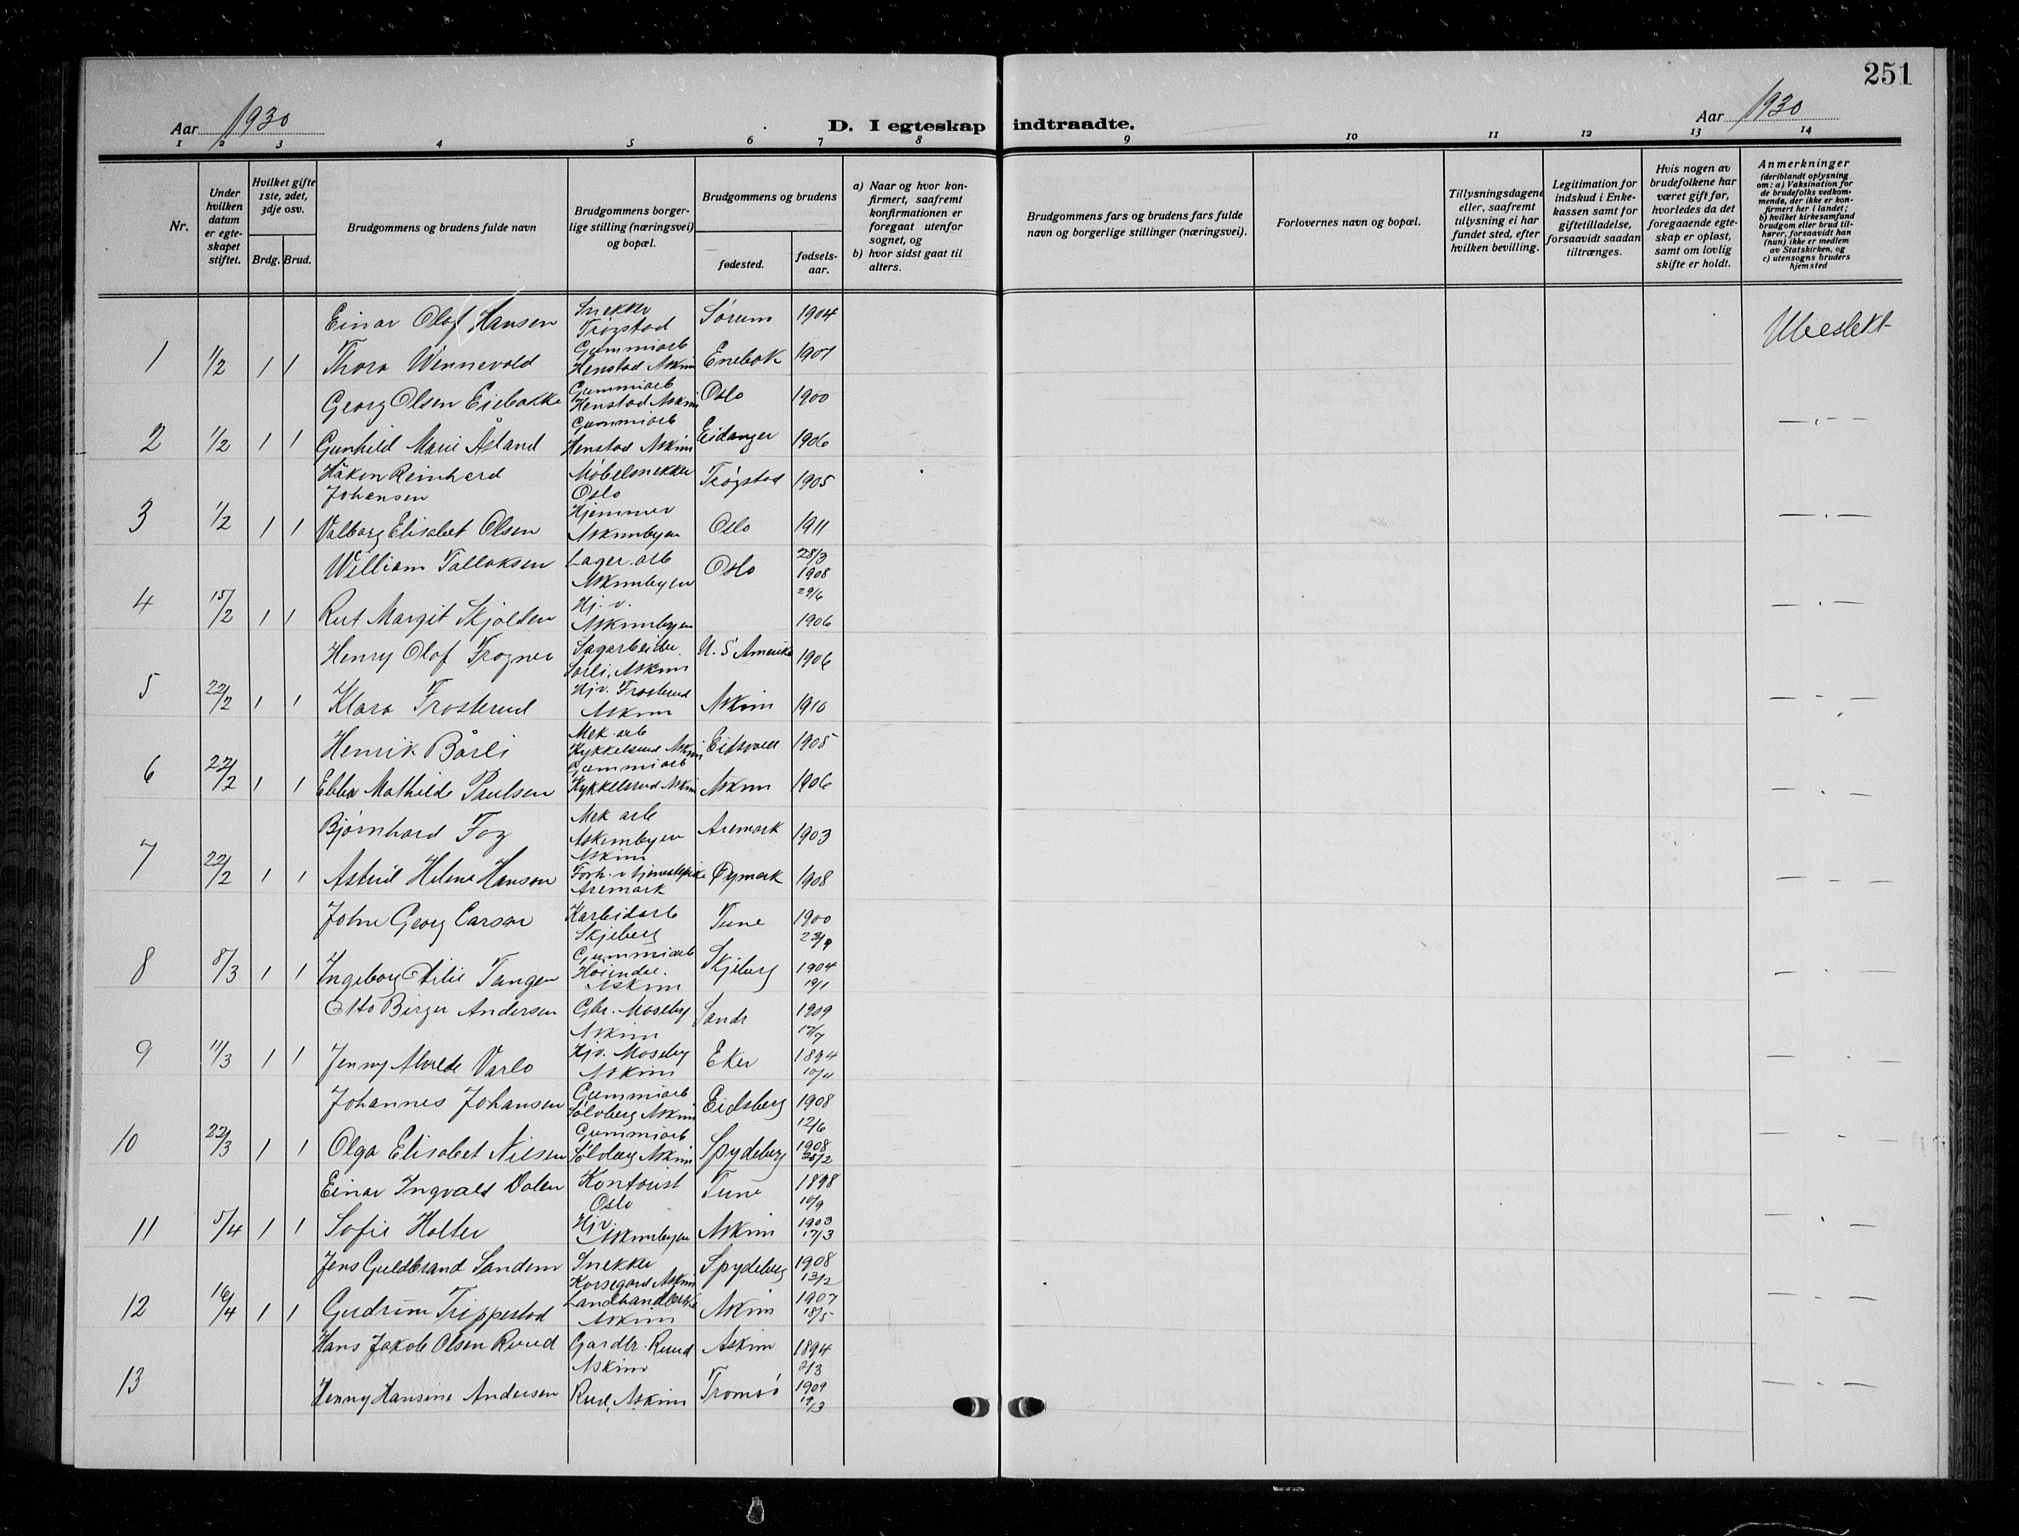 251
Aar 1930
D. I egteskap indtraadte.
Aar 1930
1 2 3 4 5 6 7 8 9 10 11 12 13 14
Nr.
Under hvilken datum er egte-skapet stiftet.
Hvilket gifte 1ste, 2det, 3dje osv.
Brdg. Brud.
Brudgommens og brudens fulde navn
Brudgommens borger-lige stilling (næringsvei) og bopæl.
Brudgommens og brudens
fødested.
fødsels-aar.
a) Naar og hvor kon-firmert, saafremt konfirmationen er foregaat utenfor sognet, og
b) hvor sidst gaat til alters.
Brudgommens fars og brudens fars fulde navn og borgerlige stillinger (næringsvei).
Forlovernes navn og bopæl.
Tillysningsdagene eller, saafremt tillysning ei har fundet sted, efter hvilken bevilling.
Legitimation for indskud i Enke-kassen samt for giftetilladelse, forsaavidt saadan tiltrænges.
Hvis nogen av brudefolkene har været gift før, hvorledes da det foregaaende egte-skap er opløst, samt om lovlig skifte er holdt.
Anmerkninger (deriblandt oplysning om: a) Vaksination for de brudefolks vedkom-mende, der ikke er kon-firmert her i landet; b) hvilket kirkesamfund brudgom eller brud til-hører, forsaavidt han (hun) ikke er medlem av Statskirken, og c) utensogns bruders hjemsted
Einar Olaf Hansen Snekker Trøgstad Sørum 1904 Ubeslekt
1 1/2 1 1 Thora Winnevold Gummiarb Henstad Askim Enebak 1907
Georg Olsen Eiebakke Gummiarb Henstad Askim Oslo 1900
2 1/2 1 1 Gunhild Marie Åsland Gummiarb Henstad Askim Eidanger 1906 — . —
Håken Reinhard Johansen Møbelsnekker Oslo Trøgstad 1905
3 1/2 1 1 Valborg Elisabet Olsen Hjemmev Askimbyen Oslo 1911 — . —
William Tallaksen Lager.arb Askimbyen Oslo 28/3 1908
4 15/2 1 1 Rut Margit Skjolden Hj.v. Askimbyen 29/6 1906 — . —
Henry Olaf Frogner Sagarbeider Sørli, Askim U. S Amerika 1906
5 22/2 1 1 Klara Frosterud Hjv. Frosterud Askim Askim 1910 — . —
Henrik Bårli Mek. arb Kykkelsrud Askim Eidsvoll 1905
6 22/2 1 1 Ebba Mathilde Paulsen Gummiarb Kykkelsrud Askim Askim 1906 — . —
Bjørnhard Fog Mek arb Askimbyen Askim Aremark 1903
7 22/2 1 1 Astrid Helene Hansen Aremark Øymark 1908 — . —
John Georg Carson Karbidarb Skjeberg Tune 1900 23/9
8 8/3 1 1 Ingeborg Tangen Gummiarb Askim Skjeberg 1904 19/1 — . —
Otto Birger Andersen Gbr. Moseby Askim Sande 1909 12/7
9 11/3 1 1 Jenny Alvilde Varlo Hjv. Moseby Askim Eker 1894 10/11 — . —
Johannes Johansen Gummiarb Sølvberg Askim Eidsberg 1908 12/6
10 22/3 1 1 Olga Elisabet Nilsen Gummiarb Sølvberg Askim Spydeberg 1908 28/2 — . —
Einar Ingvald Dalen Kontorist Oslo Tune 1898 10/9
11 5/4 1 1 Sofie Holter Hjv. Askimbyen Askim 1903 17/3 — . —
Jens Guldbrand Sandem Snekker Korsegard Askim Spydeberg 1908 13/2
12 16/4 1 1 Gudrun Trippestad Askim Askim 1907 18/5 — . —
Hans Jakob Olsen Ruud Gardbr. Ruud Askim Askim 1894 2/3
13 Henny Hansine Andersen Rud, Askim Tromsø 1909 19/3 — . —